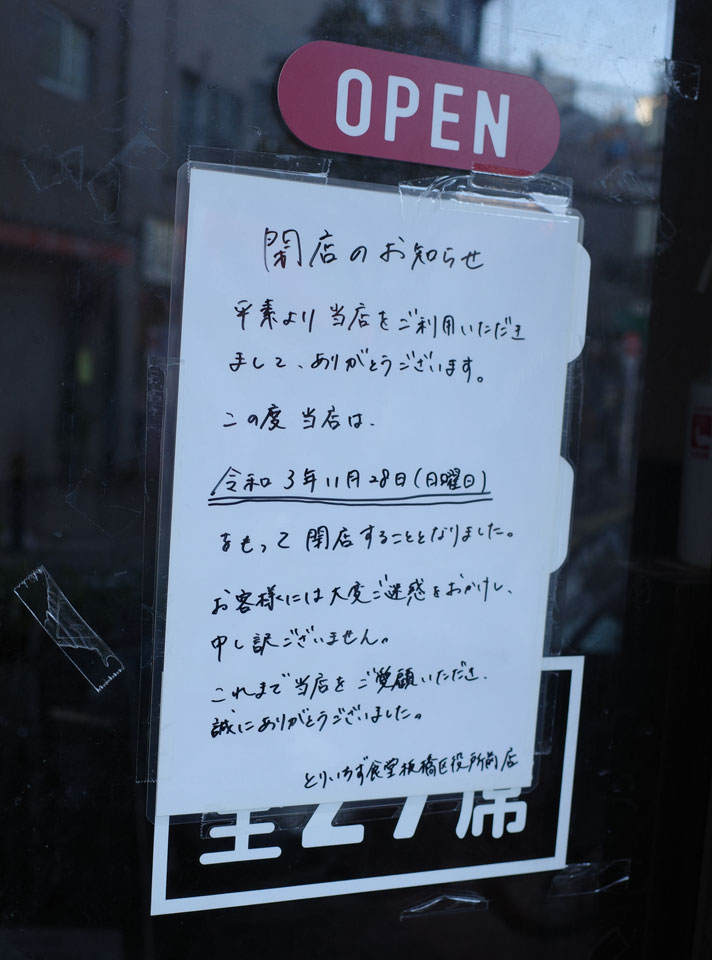 OPEN
閉店のお知らせ
平素より当店をご利用いただき
まして、ありがとうございます。
この度当店は、
令和3年11月28日(日曜日)
をもって閉店することとなりました。
お客様には大変ご迷惑をおかけし、
申し訳ございません。
これまで当店をご愛顧いただき、
誠にありがとうございました。
とりいちず食堂板橋区役所前店
全27席